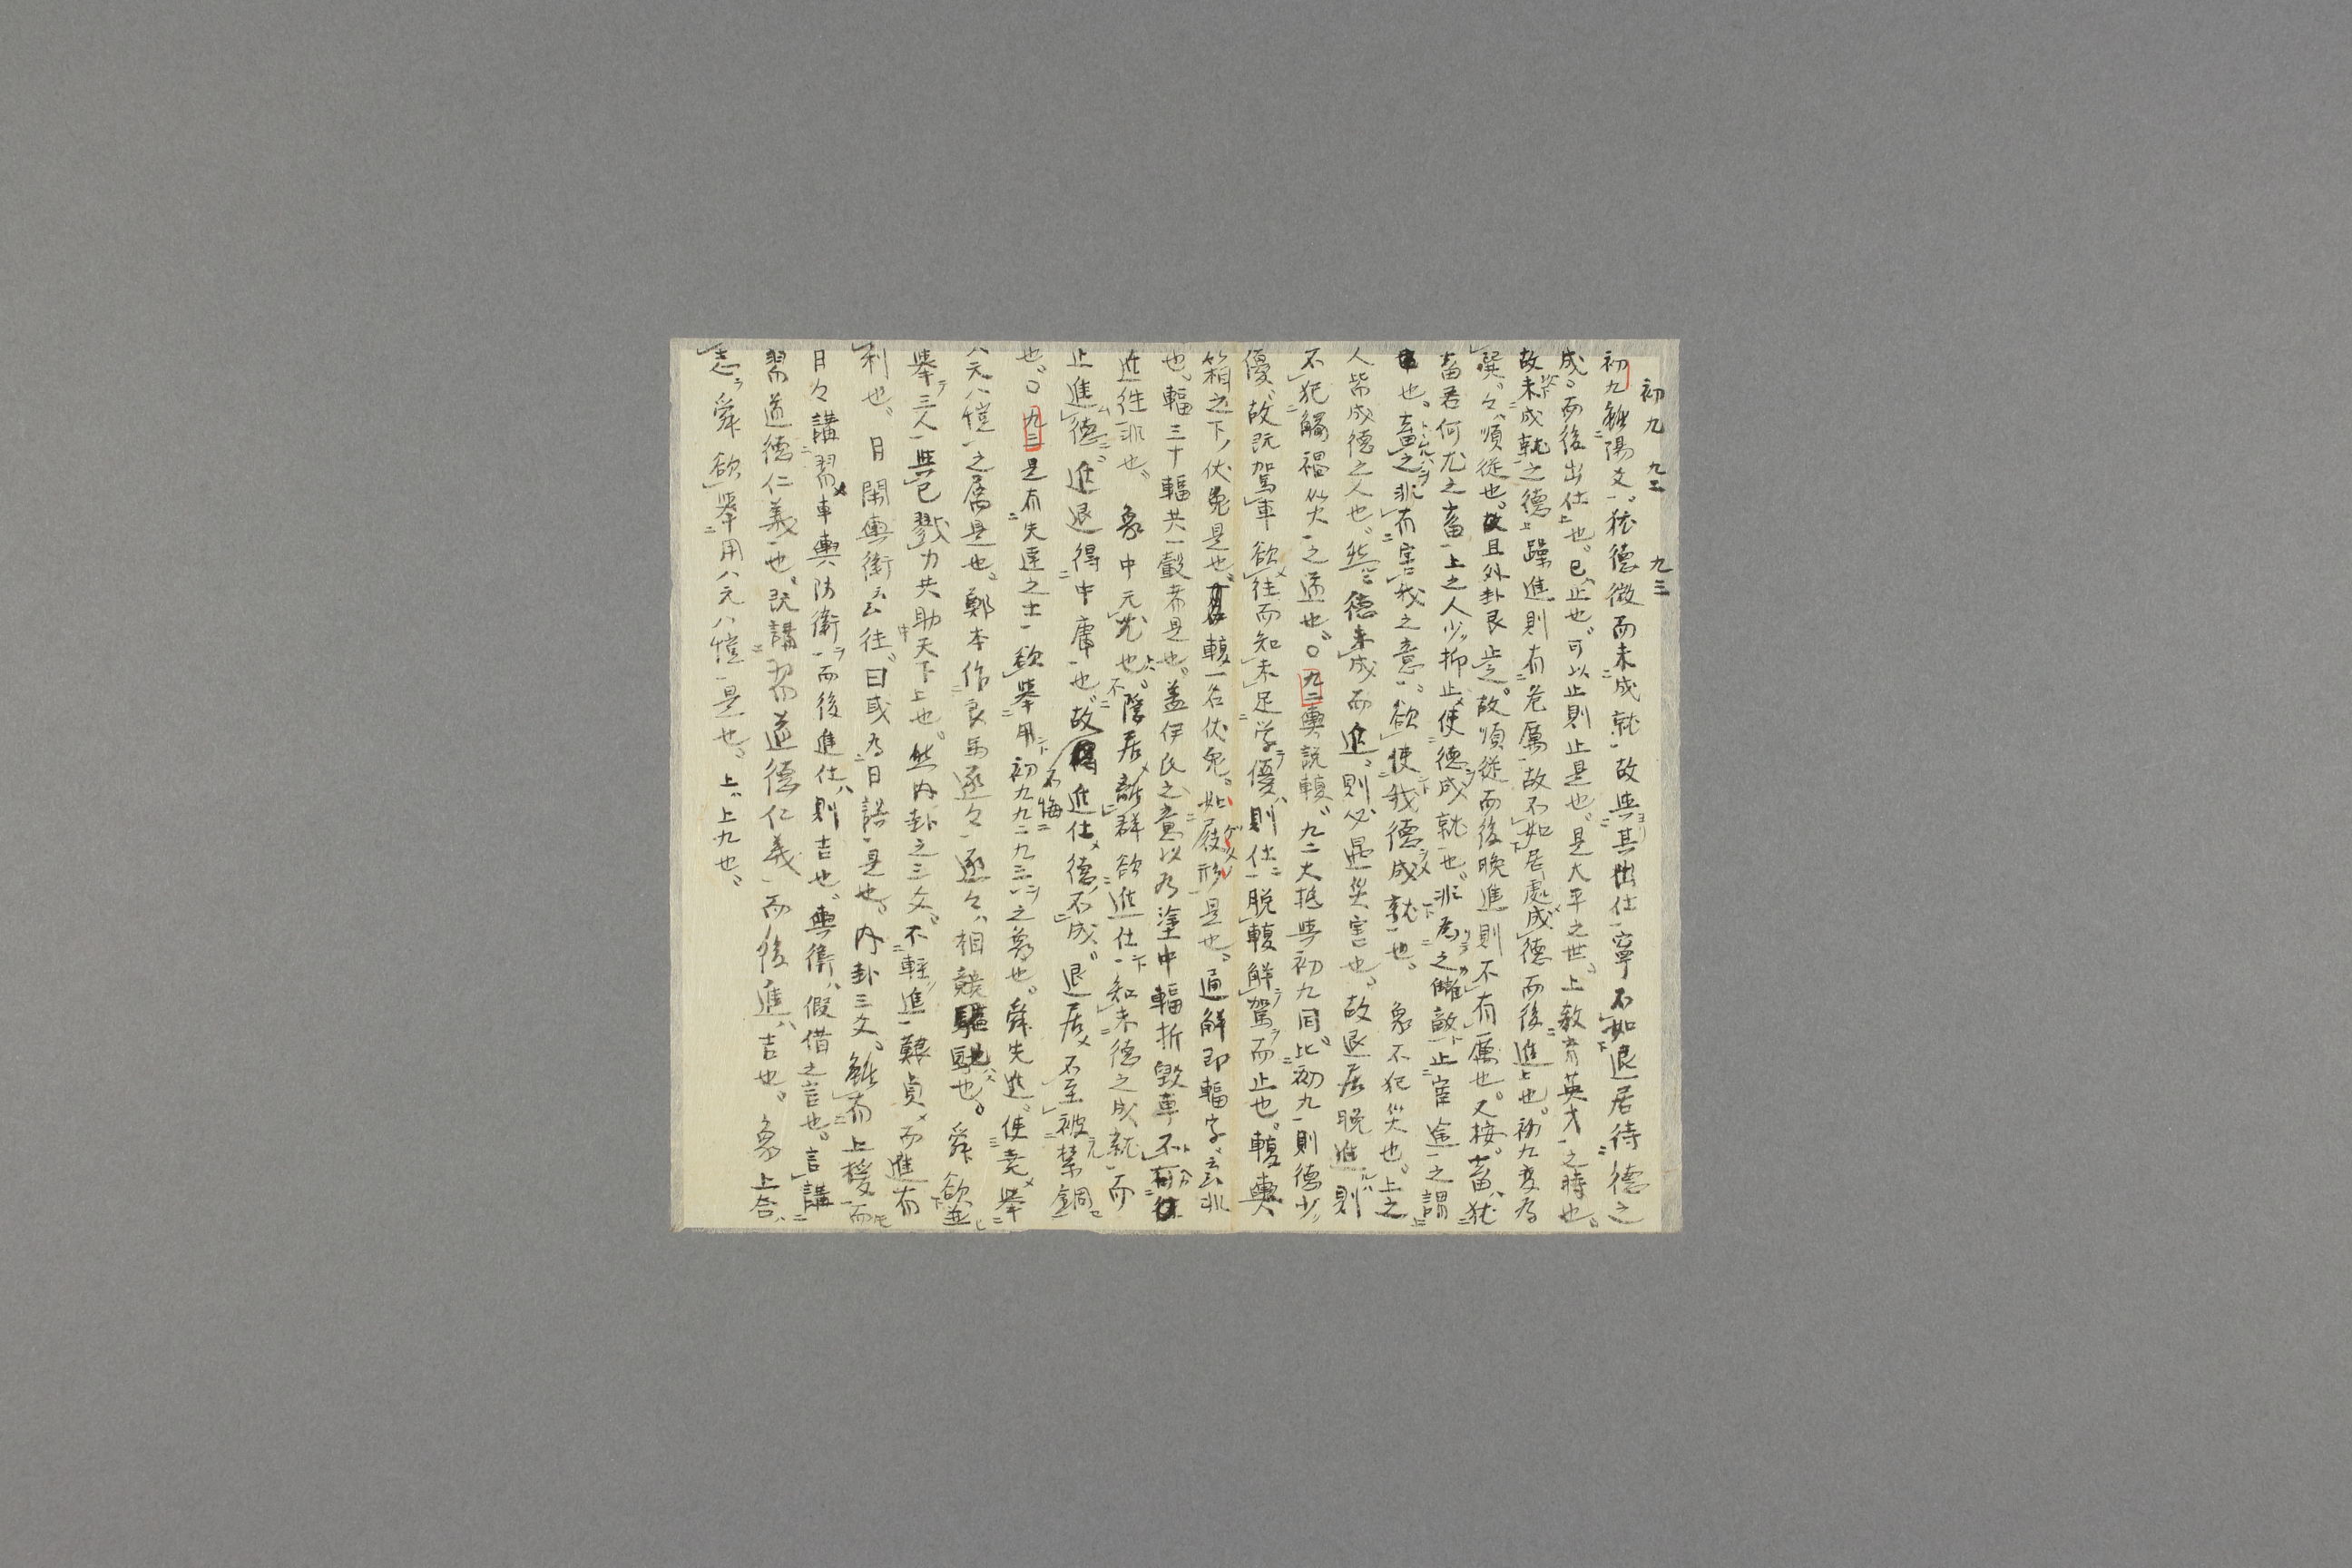 初九 九二 九三
初九雖陽爻一。猶德微而未成就一故與其出仕一寧不如退居待德之
成。而後出仕也。已止也。可以止則止是也。是大平之世。上教育英才一之時也。
故未成就之德上躁進則有危厲一故不如居處成德而後進上也。初九変為
巽。々順從也。且外卦艮止之。故順從而後晚進則不有厲也。又按。畜猶
畜君何尤之畜一上之人少抑止使德成就一也。非為之儺敵止宦途一之謂
也。畜之非有害我之意一。欲使我德成就一也。 象不犯災也。上之
人皆成德之人也。然德未成而進。則必逼災害也。故退居晚進則
不犯觸禍災一之道也。〇九二輿說輹。九二大抵與初九同。比初九一則德少
優。故既駕車欲往而知未足学優則仕一脱輹解駕而止也。輹輿
箱之下伏兔是也。輹一名伏兔。如屐形一是也。通解即輻字。云非
也。輻三十輻共一轂者是也。盖伊氏之意以為塗中輻折毀車不
進往非也。 象中元尤也。隱居離群欲進仕一知未德之成就一而
止進德。進退得中庸一也。故進仕德不成。退居不至被禁錮
不悔
也。〇九三是有先達之士一欲舉用初九九二九三一之為也。舜先進。使堯舉
八元八愷一之属是也。鄭本作良馬逐々一逐々相競驅馳也。舜欲並
舉三人一與已戮力共助天下上也。然内卦之三爻。不輕進一艱貞而進有
利也。 日閑輿衛云往。曰或為日語一是也。内卦三爻。雖有上援一而
日々講習車輿防衛一而後進仕則吉也。輿衛假借之言也。言講
習道德仁義一也。既講習道德仁義一而後進吉也。 象上合
志。舜欲舉用八元八愷一是也。上上九也。